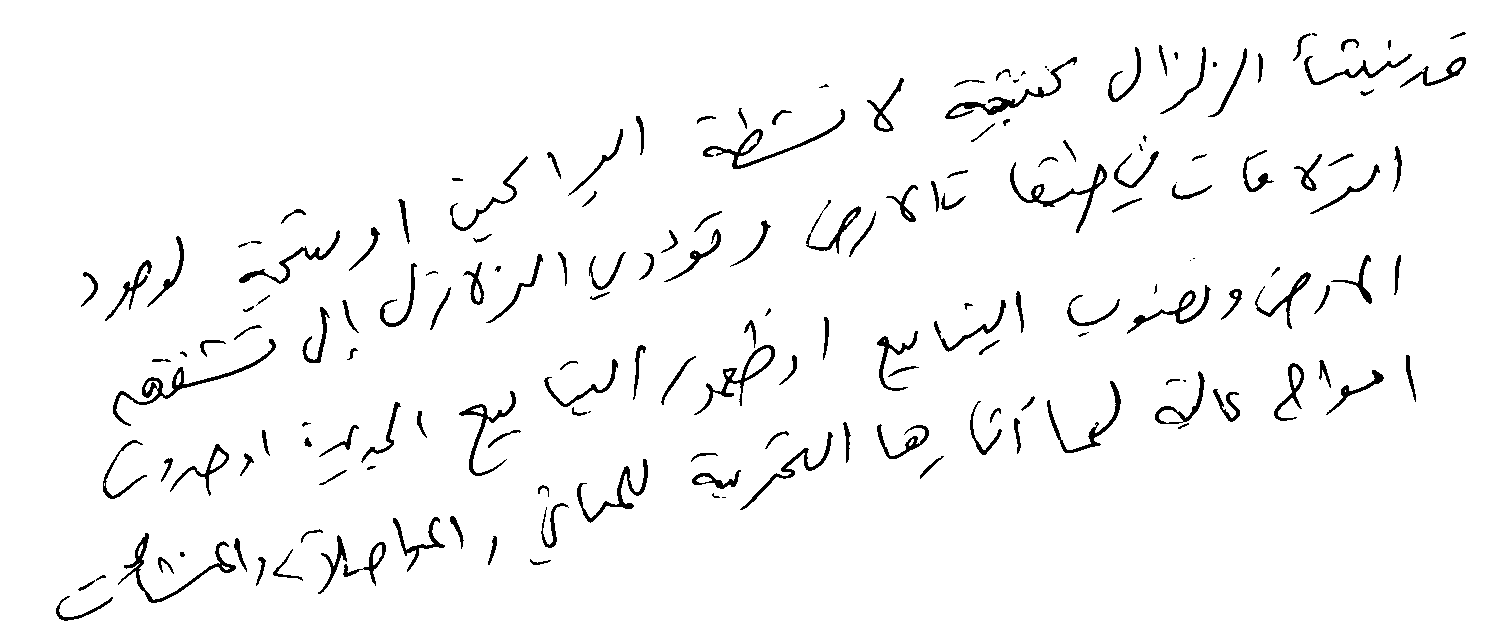 قد ينشأ الزلزال كنتيجة لانشطة البراكين او نتيجة لوجود
انزلاقات في طبقات الارض وتؤدي الزلازل إلى تشقق
الارض ونضوب الينابيع او ظهور الينابيع الجديدة او حدوث
امواج عالية لها آثارها التخريبية للمباني والمواصلات والمنشآت